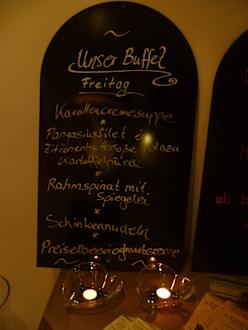 Unser Buffet
Freitag
Karottencremesuppe
*
Pangasiusfilet i
Zitronenbuttersoße dazu
Kartoffelpüree
*
Rahmspinat mit
Spiegelei
*
Schinkennudeln
*
Preiselbeerjoghurtcreme